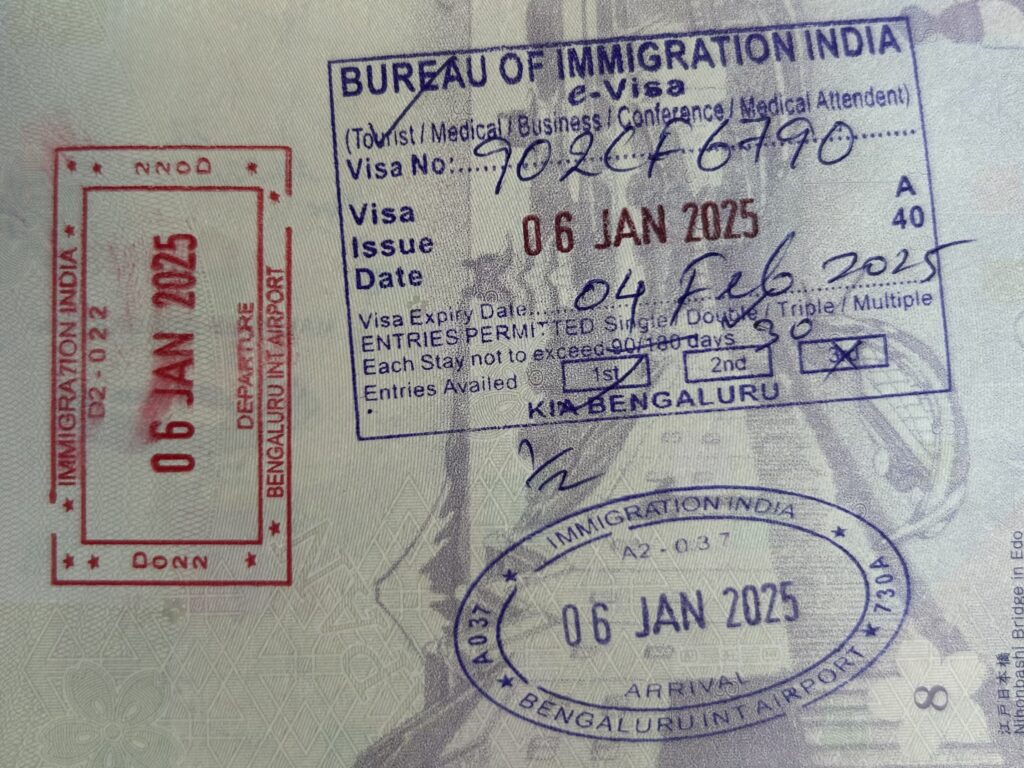 220D
IMMIGRATION INDIA
D2-022
06 JAN 2025
DEPARTURE
BENGALURU INT AIRPORT
D022
BUREAU OF IMMIGRATION INDIA
e-Visa
(Tourist / Medical / Business / Conference / Medical Attendent)
Visa No:.....902CF6790
Visa Issue Date
06 JAN 2025
A
40
Visa Expiry Date....04 Feb 2025
ENTRIES PERMITTED Single / Double / Triple / Multiple
Each Stay not to exceed 90/180 days 30
Entries Availed 1st 2nd 3rd
KIA BENGALURU
IMMIGRATION INDIA
A2-037
A037
06 JAN 2025
730A
ARRIVAL
BENGALURU INT AIRPORT
8
江戸日本橋
Nihonbashi Bridge in Edo